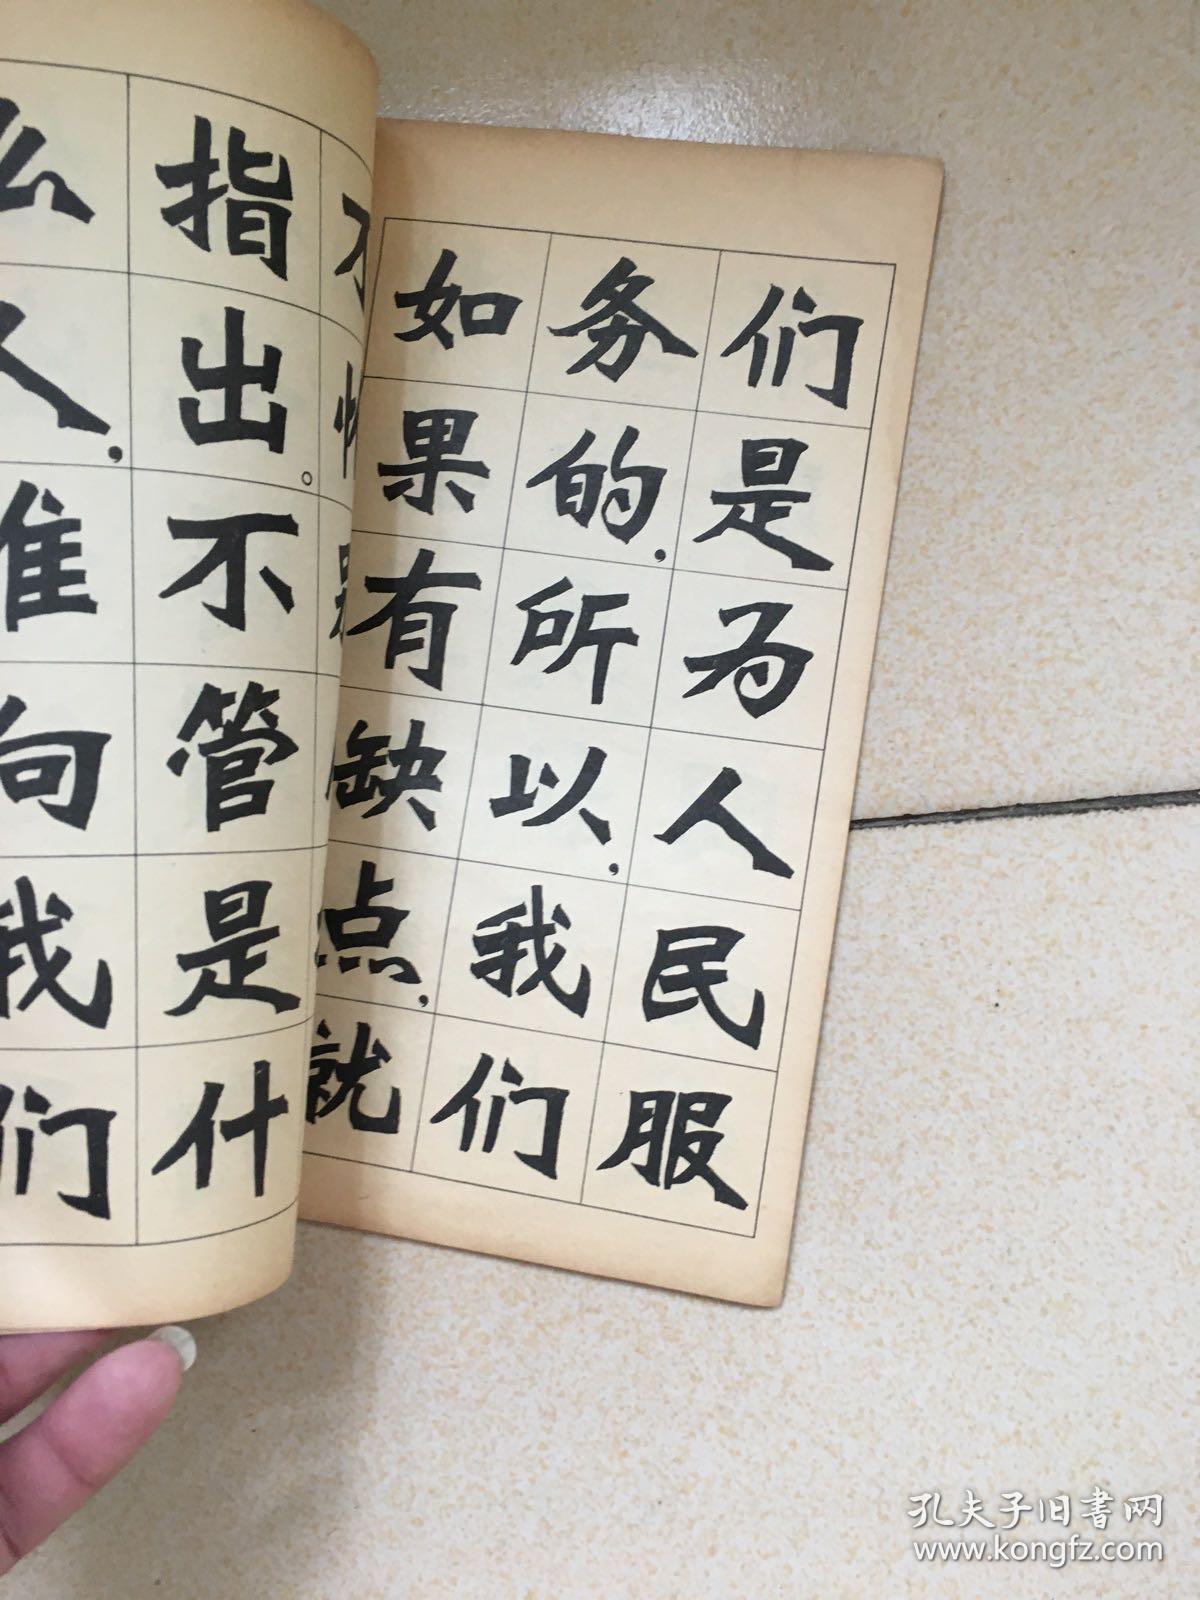 们是为人民服
务的，所以，我们
如果有缺点，就
指出。不管是什
么人，谁向我们
孔夫子旧书网
www.kongfz.com